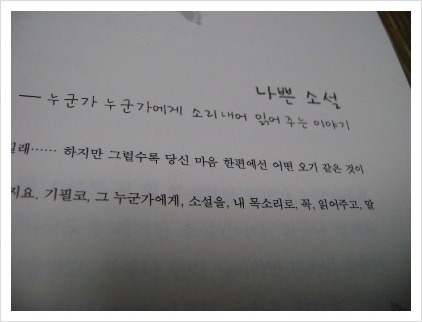 나쁜 소설
— 누군가 누군가에게 소리내어 읽어 주는 이야기
래…… 하지만 그럴수록 당신 마음 한편에선 어떤 오기 같은 것이
지요. 기필코, 그 누군가에게, 소설을, 내 목소리로, 꼭, 읽어주고, 말